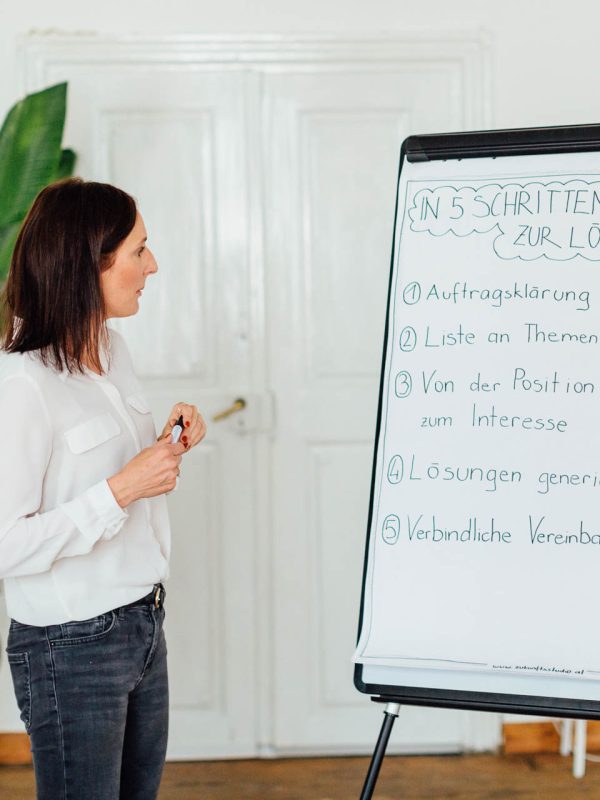 IN 5 SCHRITTEN
ZUR LÖ
① Auftragsklärung
② Liste an Themen
③ Von der Position
zum Interesse
④ Lösungen generi
⑤ Verbindliche Vereinba
www.zukunftsstudio.at